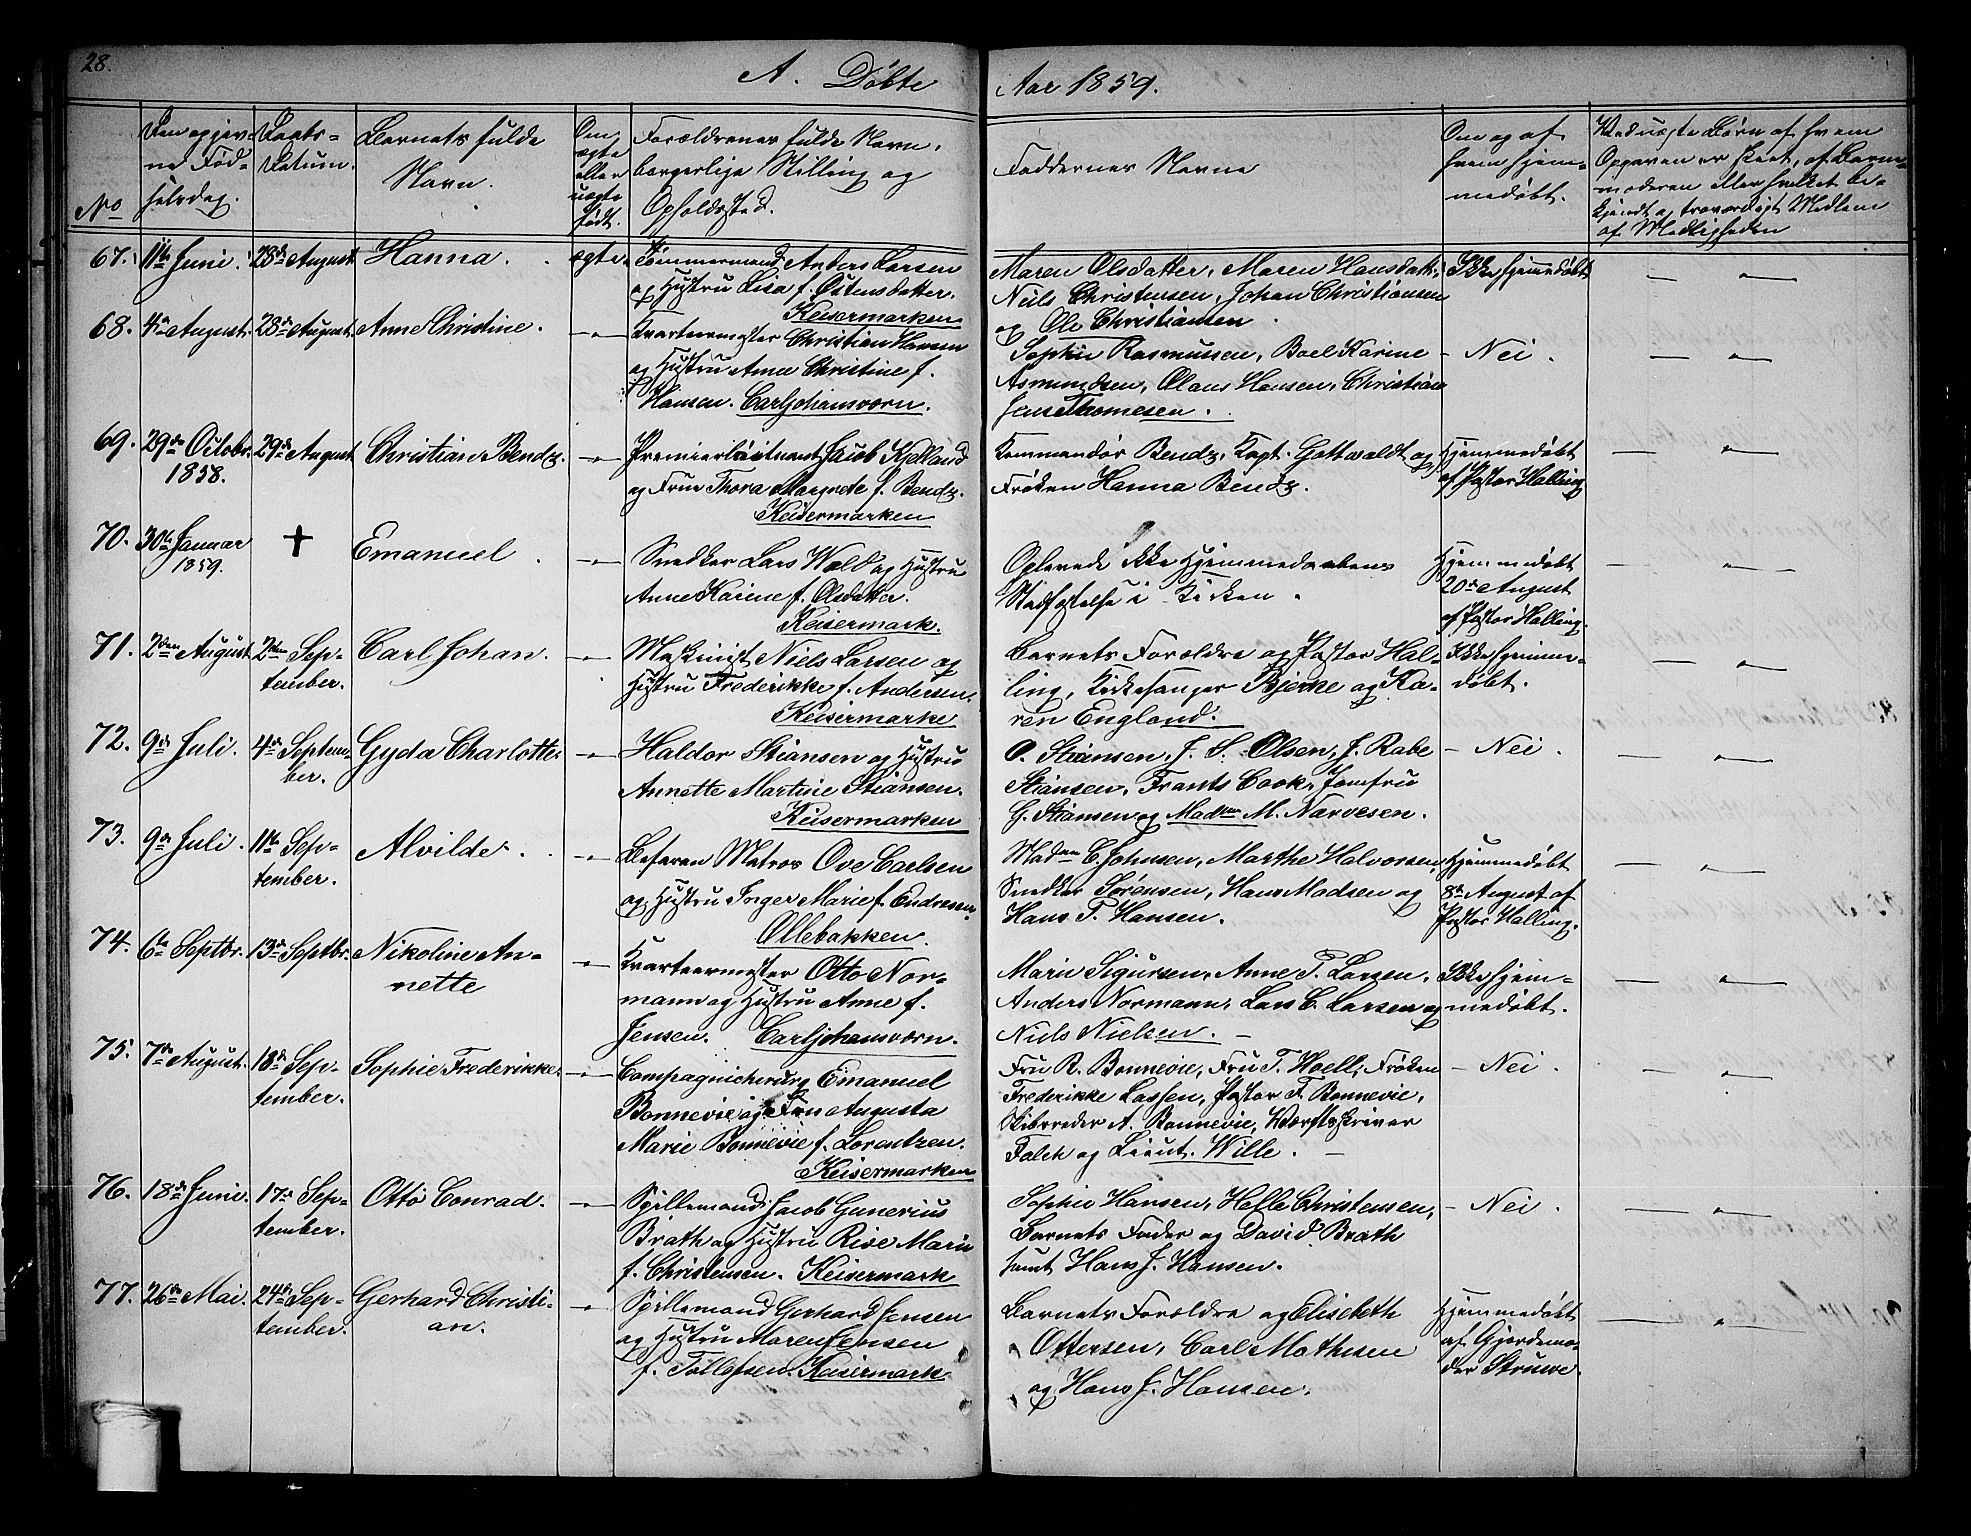 28.
A. Döbte
Aar 1859.
No
Den opgivne Fødselsdag.
Daabs-Datum.
Barnets fulde Navn.
Om ægte eller uægte født.
Forældrenes fulde Navn, borgerlige Stilling og Opholdssted.
Faddernes Navne
Om og af hvem hjemmedøbt.
Ved uægte Børn af hvem Opgaven er skeet, af Barnemoderen eller hvilket bekjendt og troværdigt Medlem af Menigheden
67. 11te Juni. 28de August Hanna. ægte. Tømmermand Anders Larsen
og Hustru Lisa f. Østensdatter.
Keisermarken
Maren Olsdatter, Maren Hansdatt.,
Niels Christensen, Johan Christiansen
og Ole Christiansen.
Ikke hjemmedøbt
68. 4de August. 28de August. Anne Christine. Kvarteermester Christian Hansen
og Hustru Anne Christine f.
Hansen. Carljohansværn.
Sophie Rasmussen, Boel Karine
Asmundsen, Olaus Hansen, Christian
Jens Thomesen.
Nei.
69. 29de Octobr. 1858. 29de August Christian Bendz. Premierløitnant Jacob Kjelland
og Frue Thora Margrete f. Bendz.
Keisermarken
Kommandør Bendz, Kapt. Gottwaldt og
Frøken Hanna Bendz.
Hjemmedøbt
af Pastor Halling
70. 30te Januar 1859. + Emanuel. Snedker Lars Wold og Hustru
Anne Karine f. Olsdatter.
Keisermark.
Oplevede ikke Hjemmedaabens
Stadfæstelse i Kirken.
Hjemmedøbt
20de August
af Pastor Halling.
71. 2den August 2den September. Carl Johan. Maskinist Niels Larsen og
Hustru Frederikke f. Andersen.
Keisermarke
Barnets Forældre og Pastor Halling,
Kirkesanger Bjerke og Karen
England.
Ikke hjemmedøbt.
72. 9de Juli. 4de September. Gyda Charlotte. Haldor Stiansen og Hustru
Annette Martine Stiansen.
Keisermarken
O. Stiansen, J. S. Olsen, J. Rabe
Stiansen, Frants Cook, Jomfru
G. Stiansen og Madme M. Narvesen.
Nei.
73. 9de Juli. 11te September. Alvilde. Befaren Matros Ove Carlsen
og Hustru Inger Marie f. Endresen.
Ollebakken.
Madme C. Johnsen, Marthe Halvorsen,
Snedker Sørensen, Hans Madsen og
Hans T. Hansen.
Hjemmedøbt
8de August af
Pastor Halling.
74. 6te Septbr. 13de Septbr. Nikoline Annette Kvarteermester Otto Normann
og Hustru Anne f.
Jensen. Carljohansværn.
Marie Sigursen, Anne T. Larsen,
Anders Normann, Lars C. Larsen og
Niels Nielsen.
Ikke hjemmedøbt.
75. 7de August. 18de September. Sophie Frederikke. Compagnichirurg Emanuel
Bonnevie og Frue Augusta
Marie Bonnevie f. Lorentzen.
Keisermarken
Fru R. Bonnevie, Fru T. Hoell, Frøken
Frederikke Lassen, Pastor F. Bonnevie,
Skibsreder A. Bonnevie, Værftsskriver
Falch og Lieut. Wille.
Nei.
76. 18de Juni. 17de September. Otto Conrad. Spillemand Jacob Gunerius
Brath og Hustru Rise Marie
f. Christensen. Keisermark
Sophie Hansen, Helle Christensen,
Barnets Fader og David Brath
samt Hans J. Hansen.
Nei.
77. 26de Mai. 24de September. Gerhard Christian. Spillemand Gerhard Jensen
og Hustru Maren Jensen
f. Tollefsen. Keisermark
Barnets Forældre og Elisebeth
Ottersen, Carl Mathesen
og Hans J. Hansen.
Hjemmedøbt
af Gjordemoder
Struwe.